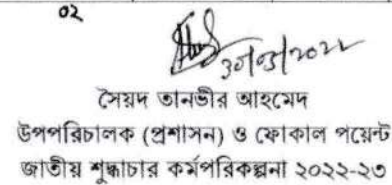 ০২
৩০/০৫/২০২২
সৈয়দ তানভীর আহমেদ
উপপরিচালক (প্রশাসন) ও ফোকাল পয়েন্ট
জাতীয় শুদ্ধাচার কর্মপরিকল্পনা ২০২২-২৩